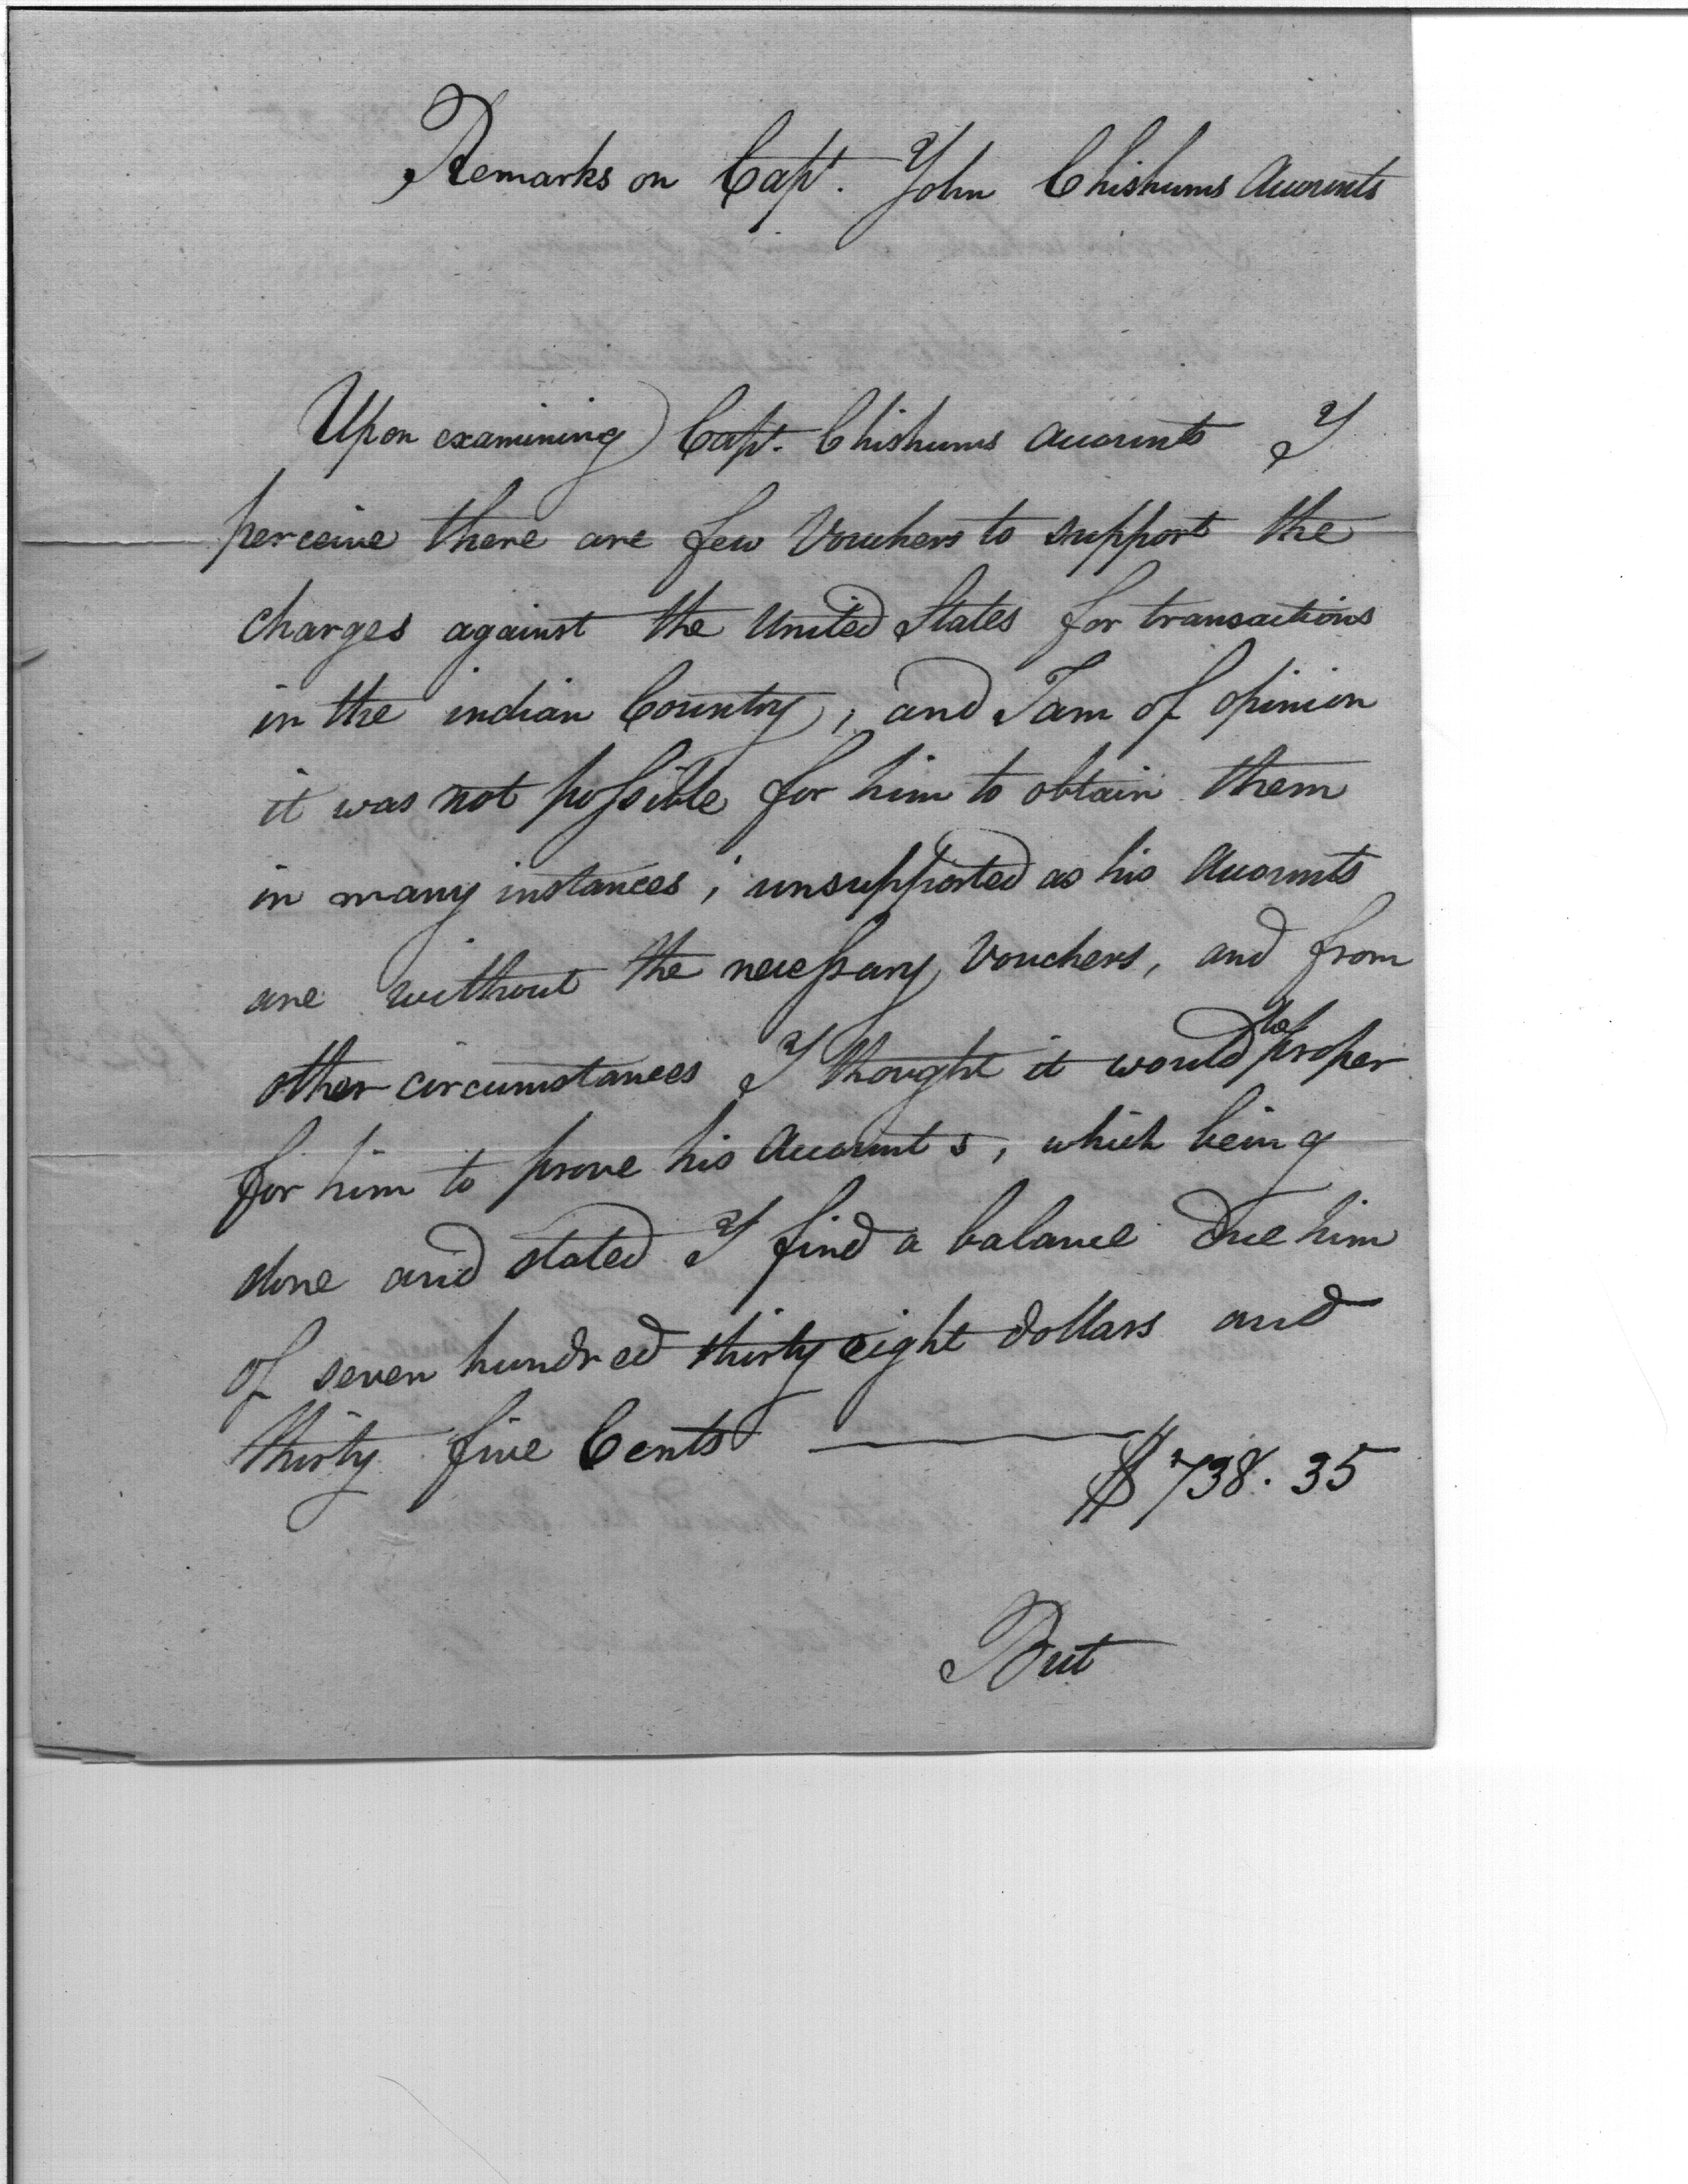 Remarks on Capt. John Chishums Accounts
Upon examining Capt. Chishums Accounts I
perceive there are few Vouchers to support the
charges against the United States for transactions
in the indian Country, and I am of opinion
it was not possible for him to obtain them
in many instances; unsupported as his Accounts
are without the necessary Vouchers, and from
other circumstances I thought it would be proper
for him to prove his Accounts, which being
done and stated I find a balance due him
of seven hundred thirty eight dollars and
thirty five Cents — $738.35
But